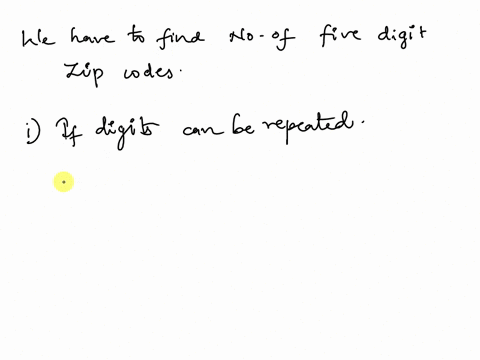 We have to find No. of five digit
Zip codes.
i) If digits can be repeated.